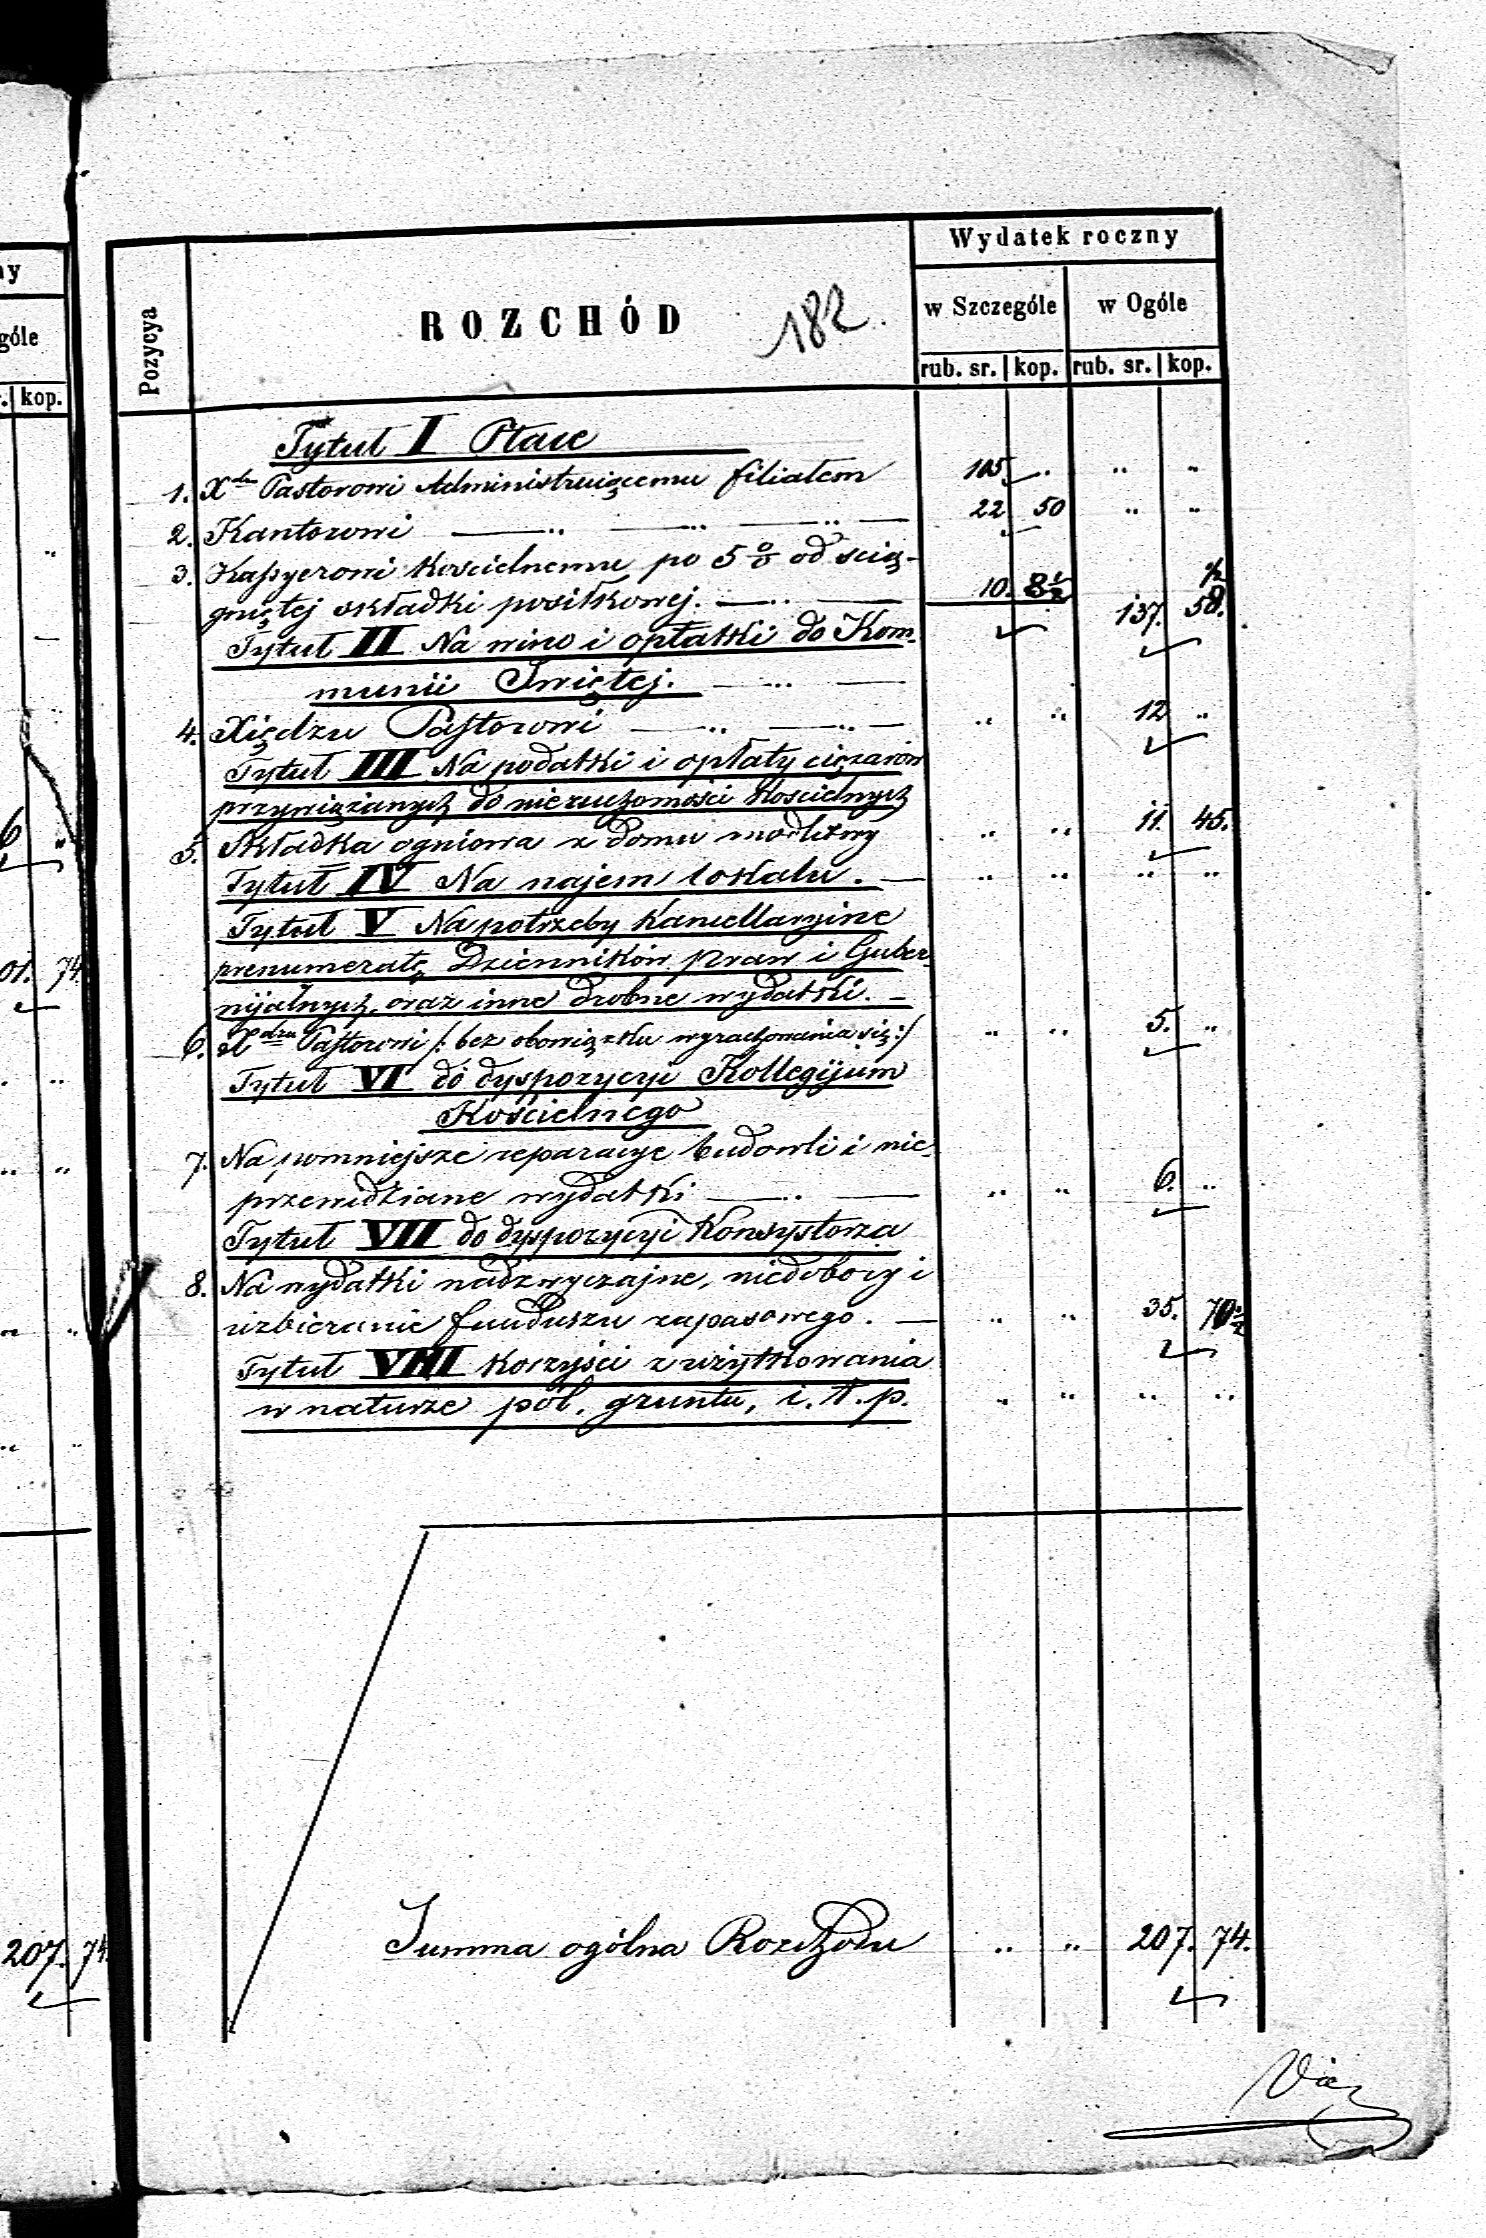 ny
góle
r. kop.
6 "
01. 74
207. 74
Pozycya
ROZCHÓD
182.
Wydatek roczny
w Szczególe w Ogóle
rub. sr. kop. rub. sr. kop.
Tytuł I Płace
1. Xdu Pastorowi Administruiącemu filiałem 105 " " "
2. Kantorowi — " — " — " — 22 50 " "
3. Kassyerowi Koscielnemu po 5 % od scią-
gniętej składki posiłkowej. — " — 10. 8½ 137. 58½.
Tytuł II Na wino i opłatki do Kom-
munii Swiętej. — " —
4. Xiędzu Pastorowi — " — " — " " 12 "
Tytuł III Na podatki i opłaty ciężarów
przywiązanych do nieruchomości Koscielnych
5. Składka ogniowa z domu modlitwy " " 11. 45.
Tytuł IV Na najem lokalu. — " " " "
Tytuł V Na potrzeby Kancellaryine
prenumeratę Dzienników praw i Guber-
nijalnych, oraz inne drobne wydatki. —
6. Xdzu Pastorowi /: bez obowiązku wyrachowania się :/ " " 5. "
Tytuł VI do dyspozycyi Kollegijum
Kościelnego
7. Na pomniejsze reparacye budowli i nie-
przewidziane wydatki — " — " " 6. "
Tytuł VII do dyspozycyi Konsystorza
8. Na wydatki nadzwyczajne, niedobory i
uzbieranie funduszu zapasowego. — " " 35. 70½
Tytuł VIII Korzyści z użytkowania
w naturze pól, gruntu, i. t. p. " " " "
Summa ogólna Rozchodu " " 207. 74.